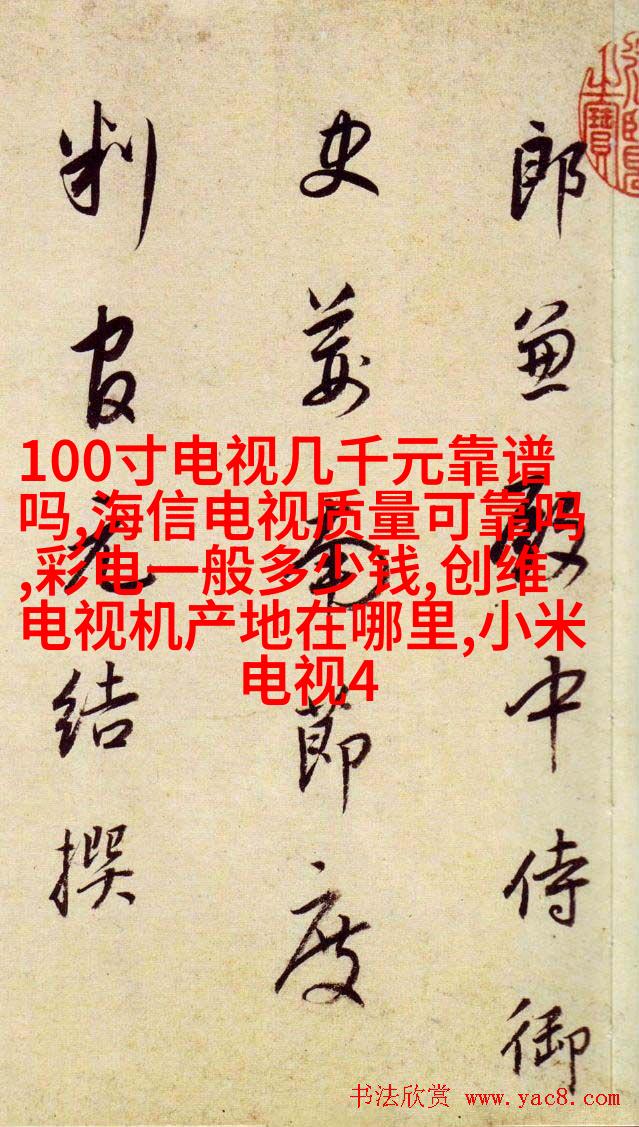 郎兼殿中侍御
史荊南節度
判官元结撰
100寸电视几千元靠谱
吗,海信电视质量可靠吗
,彩电一般多少钱,创维
电视机产地在哪里,小米
电视4
书法欣赏 www.yac8.com